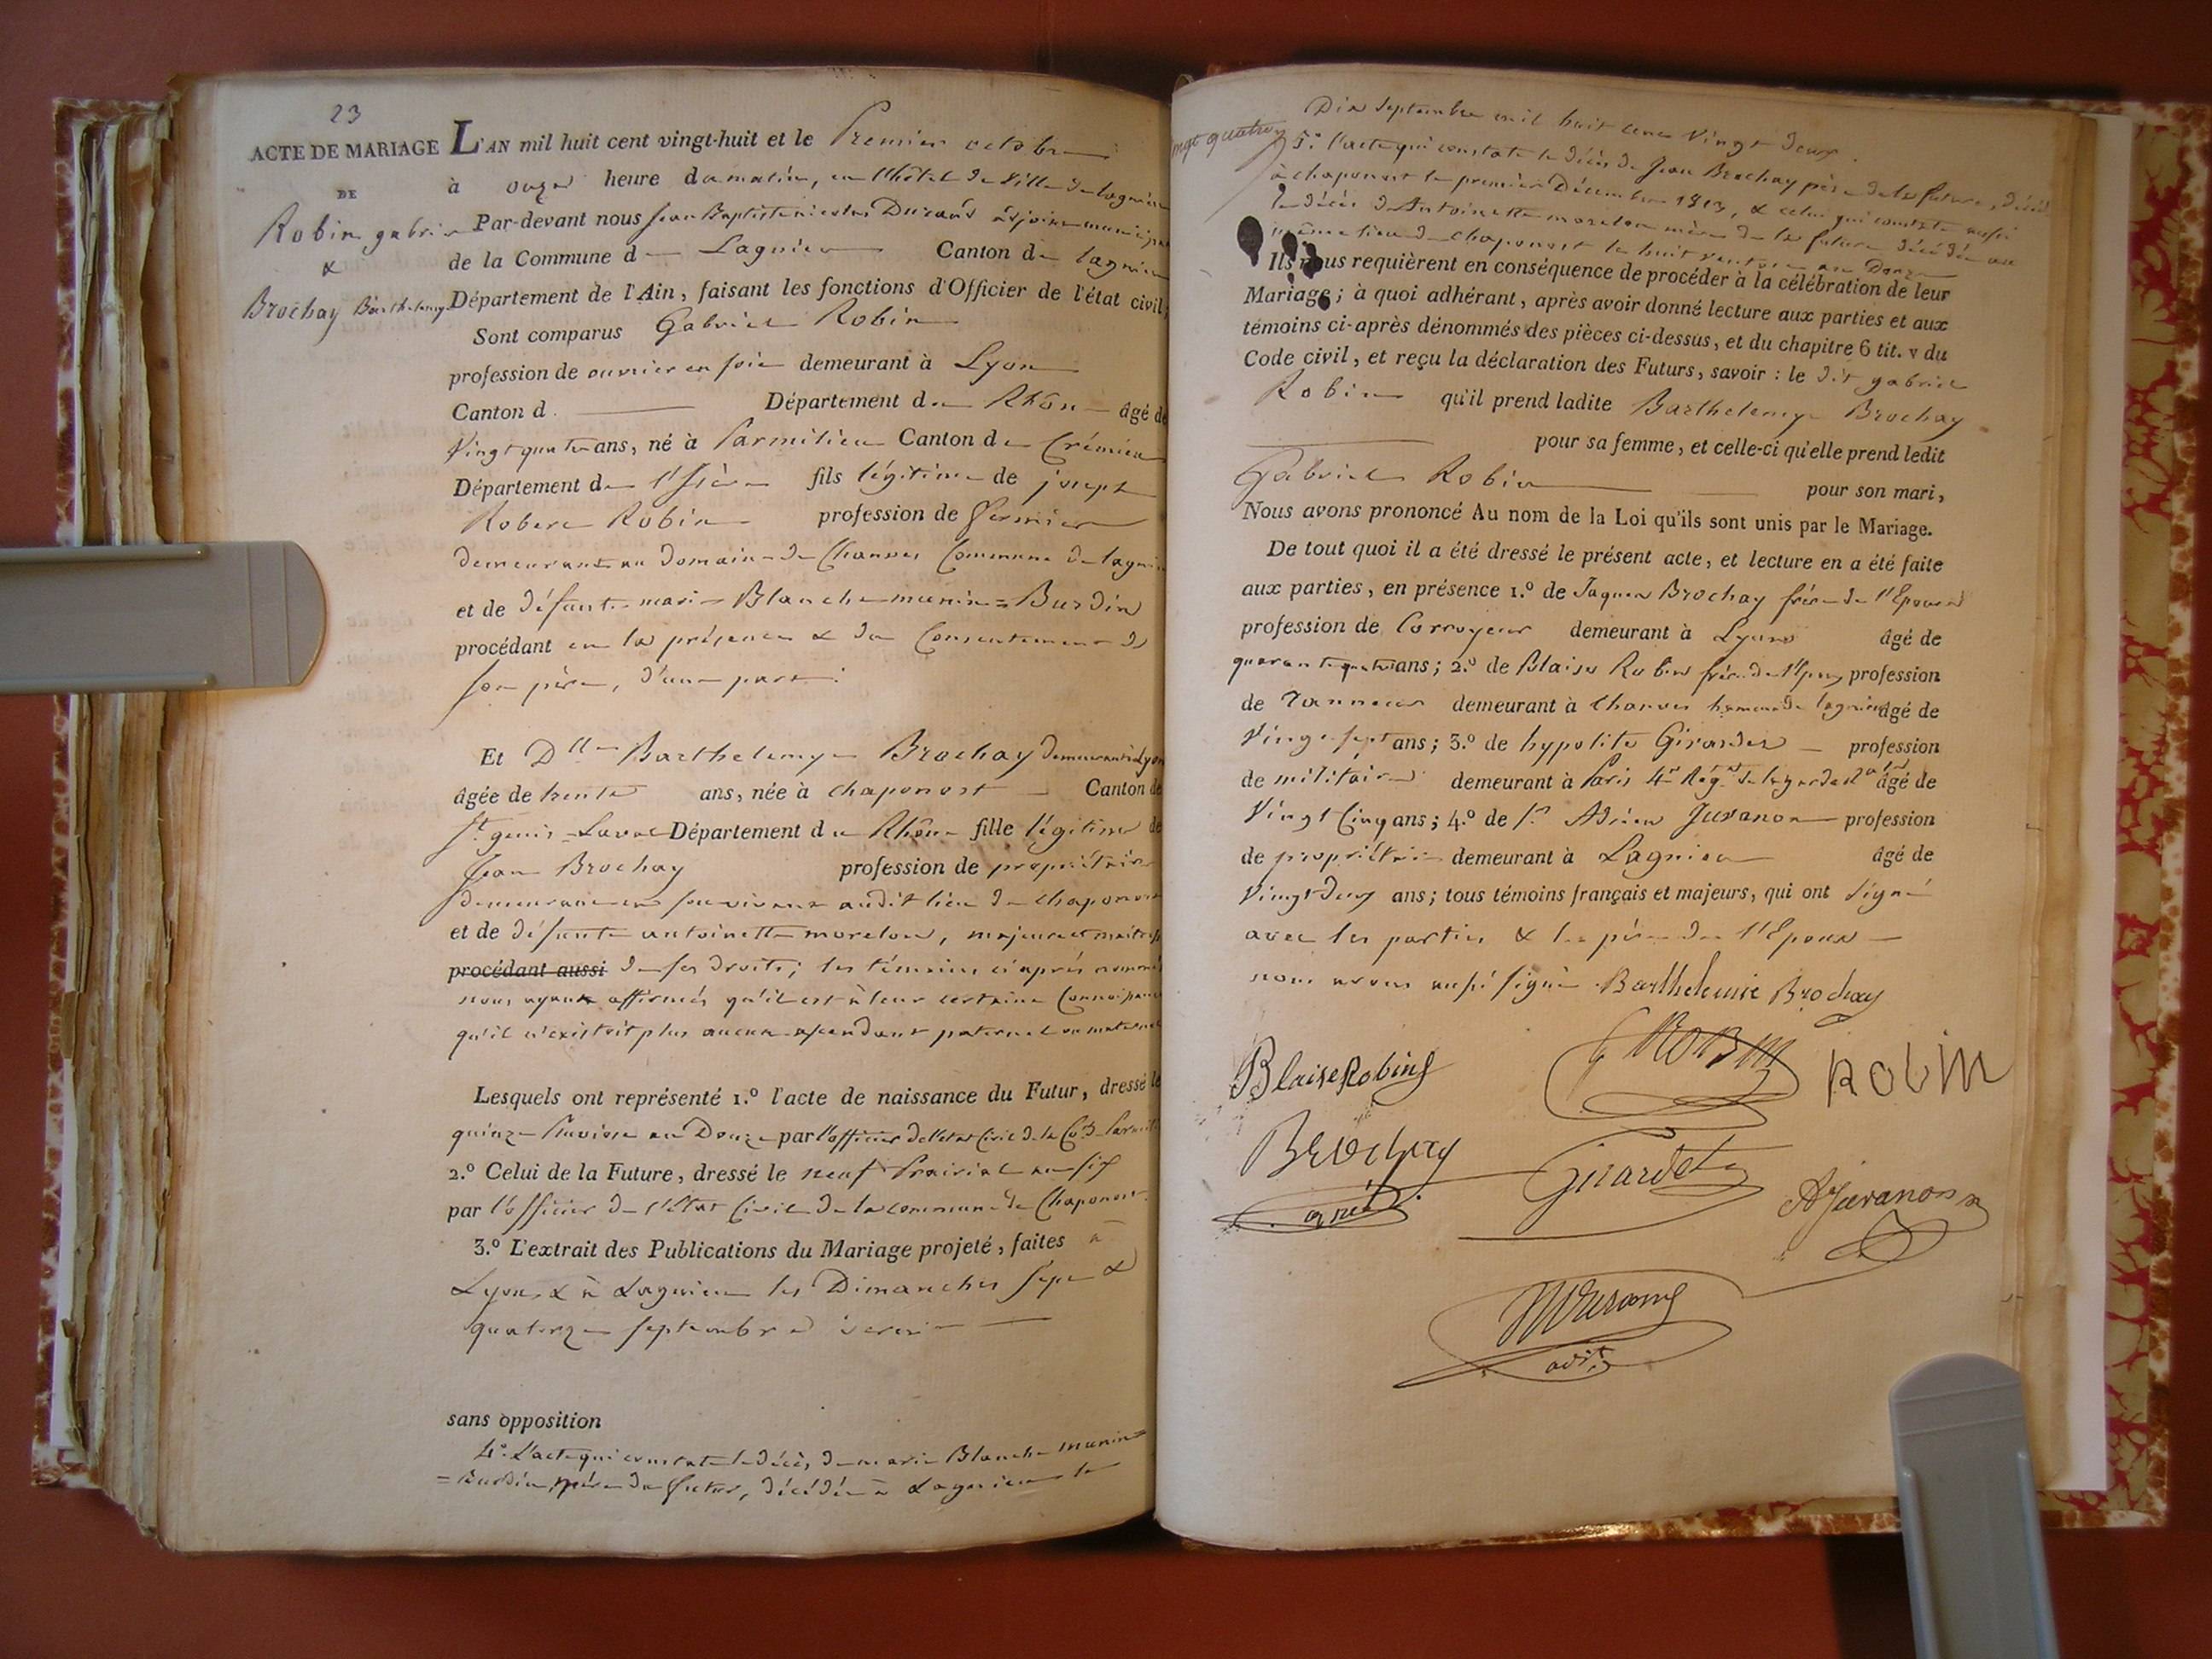 23
ACTE DE MARIAGE
DE
Robin gabriel
&
Brochay Barthelemye
L'AN mil huit cent vingt-huit et le Premier octobre
à onze heure du matin, en l'hôtel de Ville de lagnieu
Par-devant nous Jean Baptiste nicolas Durand adjoint municipal
de la Commune de Lagnieu Canton de lagnieu
Département de l'Ain, faisant les fonctions d'Officier de l'état civil;
Sont comparus Gabriel Robin
profession de ouvrier en soie demeurant à Lyon
Canton d Département du Rhône âgé de
Vingt quatre ans, né à Parmilieu Canton de Crémieu
Département de l'Isère fils légitime de joseph
Robert Robin profession de fermier
demeurant au domaine de Chanves Commune de lagnieu
et de défunte marie Blanche munin = Burdin
procédant en la présence & du Consentement de
son père, d'une part.
Et Dlle Barthelemye Brochay demeurant à Lyon
âgée de trente ans, née à chaponost Canton de
St genis-Laval Département du Rhône fille légitime de
Jean Brochay profession de propriétaire
demeurant en son vivant audit lieu de chaponost
et de défunte antoinette morelon, majeure et maitresse
procédant aussi de ses droits; les témoins ci après nommés
nous ayant affirmés qu'il est à leur certaine Connoissance
qu'il n'existoit plus aucun ascendant paternel ou maternel
Lesquels ont représenté 1.º l'acte de naissance du Futur, dressé le
quinze Pluviose an Douze par l'officier de l'état Civil de la Cne de Parmilieu
2.º Celui de la Future, dressé le neuf Prairial an six
par l'officier de l'état Civil de la commune de Chaponost
3.º L'extrait des Publications du Mariage projeté, faites à
Lyon & à Lagnieu les Dimanches sept &
quatorze septembre dernier
sans opposition
4º. L'acte qui constate le décès de marie Blanche munin =
= Burdin, mère du futur, décédée à Lagnieu le
vingt quatre
Dix septembre mil huit cent Vingt deux.
5º. l'acte qui constate le décès de Jean Brochay père de la future, décédé
à chaponost le premier Décembre 1813, & celui qui constate aussi
le décès d'Antoinette morelon mère de la future décédée au
même lieu de chaponost le huit ventose an Douze
Ils nous requièrent en conséquence de procéder à la célébration de leur
Mariage; à quoi adhérant, après avoir donné lecture aux parties et aux
témoins ci-après dénommés des pièces ci-dessus, et du chapitre 6 tit. v du
Code civil, et reçu la déclaration des Futurs, savoir : le dit gabriel
Robin qu'il prend ladite Barthelemye Brochay
pour sa femme, et celle-ci qu'elle prend ledit
Gabriel Robin pour son mari,
Nous avons prononcé Au nom de la Loi qu'ils sont unis par le Mariage.
De tout quoi il a été dressé le présent acte, et lecture en a été faite
aux parties, en présence 1.º de Jaques Brochay frère de l'Epouse
profession de Corroyeur demeurant à Lyon âgé de
quarante quatre ans; 2.º de Blaise Robin frère de l'Epoux profession
de Tanneur demeurant à Chanves hameau de lagnieu âgé de
Vingt sept ans; 3.º de hypolite Girardet profession
de militaire demeurant à Paris 4e Régt de la garde Rle âgé de
Vingt Cinq ans; 4.º de Sr Adrien Juvanon profession
de propriétaire demeurant à Lagnieu âgé de
Vingt deux ans; tous témoins français et majeurs, qui ont signé
avec les parties & le père de l'Epoux
nous avons aussi signé Barthelemie Brochay
Blaise Robin G ROBIN ROBIN
Brochay Girardet AJuvanon
NDurand
adjt